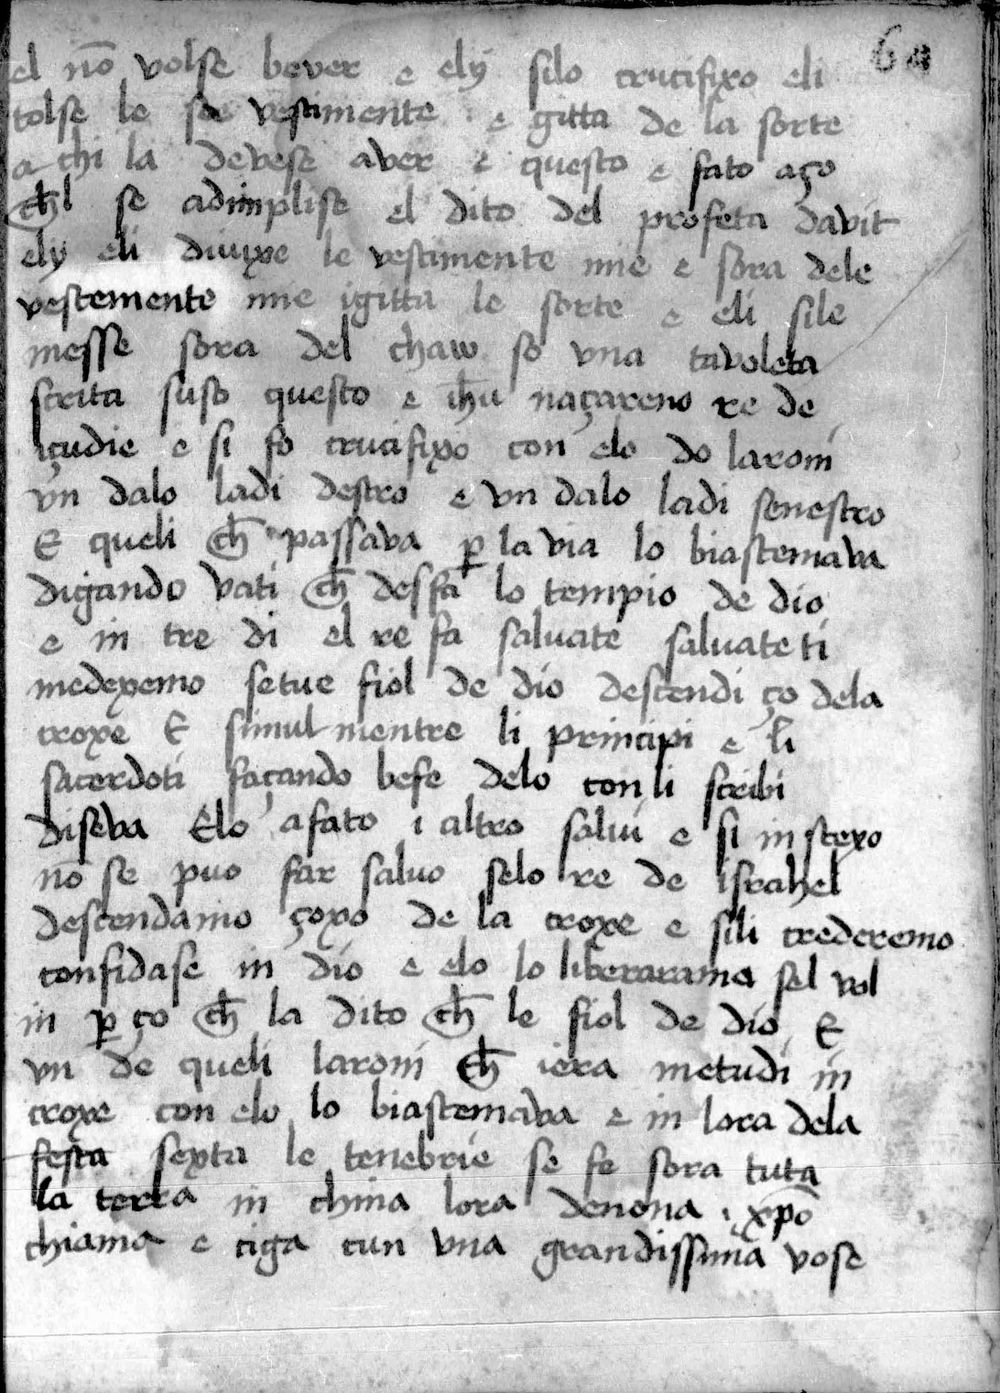 64
el nō volse bever e ely silo crucifixo eli
tolse le soe vestimente e gitta de la sorte
a chi la devese aver e questo e fato aço
ch̄l se adimplise el dito del profeta davit
ely eli diuixe le vestimente mie e sora dele
vestemente mie igitta le sorte e eli sile
messe sora del chaw so vna tavoleta
scrita suso questo e ih̄u naçareno re de
içudie e si fo crucifixo con elo do laroni
vn dalo ladi destro e vn dalo ladi senestro
E queli ch̄ passava p̱ la via lo biastemava
digando vati ch̄ desfa lo tempio de dio
e in tre di el re fa saluate saluate ti
medexemo se tue fiol de dio descendi ço dela
croxe E simulmentre li principi e li
sacerdoti façando befe delo con li scribi
diseva Elo a fato i altro salui e si in stexo
nō se puo far saluo selo re de israhel
descendamo çoxo de la croxe e sili crederemo
confidase in dio e elo lo liberarama sel vol
in p̱ ço ch̄ la dito ch̄ le fiol de dio E
vn de queli laroni ch̄ iera metudi in
croxe con elo lo biastemava e in lora dela
festa sexta le tenebrie se fe sora tuta
la terra in china lora de nona i xp̄o
chiama e criga cun vna grandissima vose